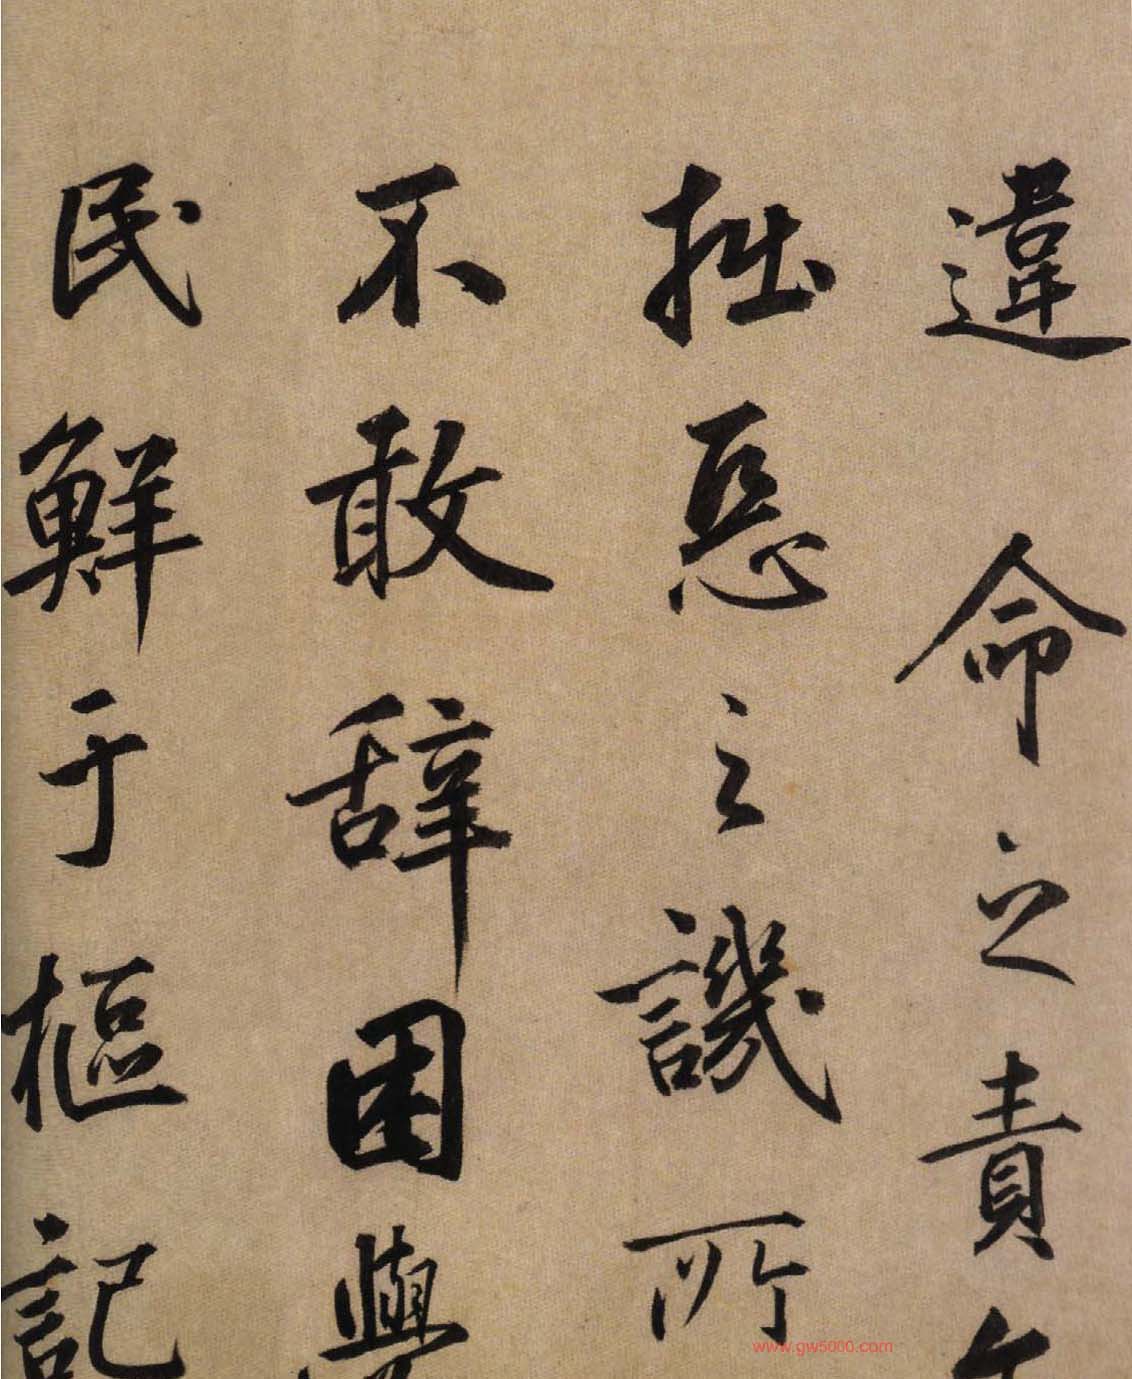 違命之責
拙惡之譏所
不敢辞困學
民鮮于樞記
www.gw5000.com